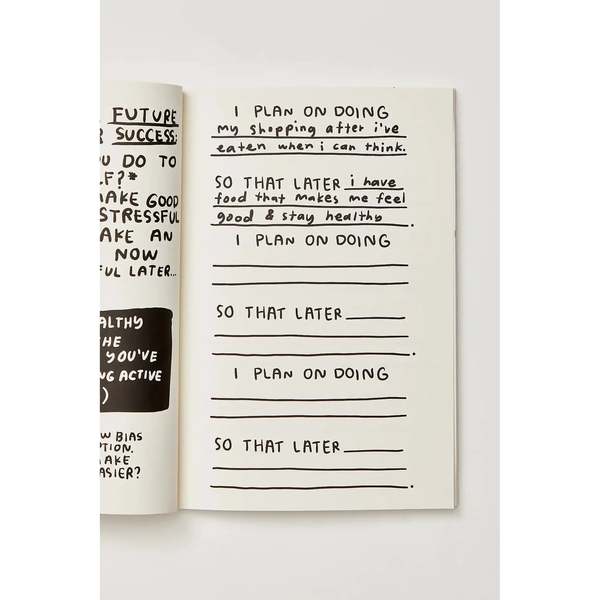 FUTURE
SUCCESS:
DO TO
MAKE GOOD
STRESSFUL
AN
NOW
LATER...
YOU'VE
ACTIVE
)
BIAS
I PLAN ON DOING
my shopping after i've
eaten when i can think.
SO THAT LATER i have
food that makes me feel
good & stay healthy.
I PLAN ON DOING
SO THAT LATER
.
I PLAN ON DOING
SO THAT LATER
.